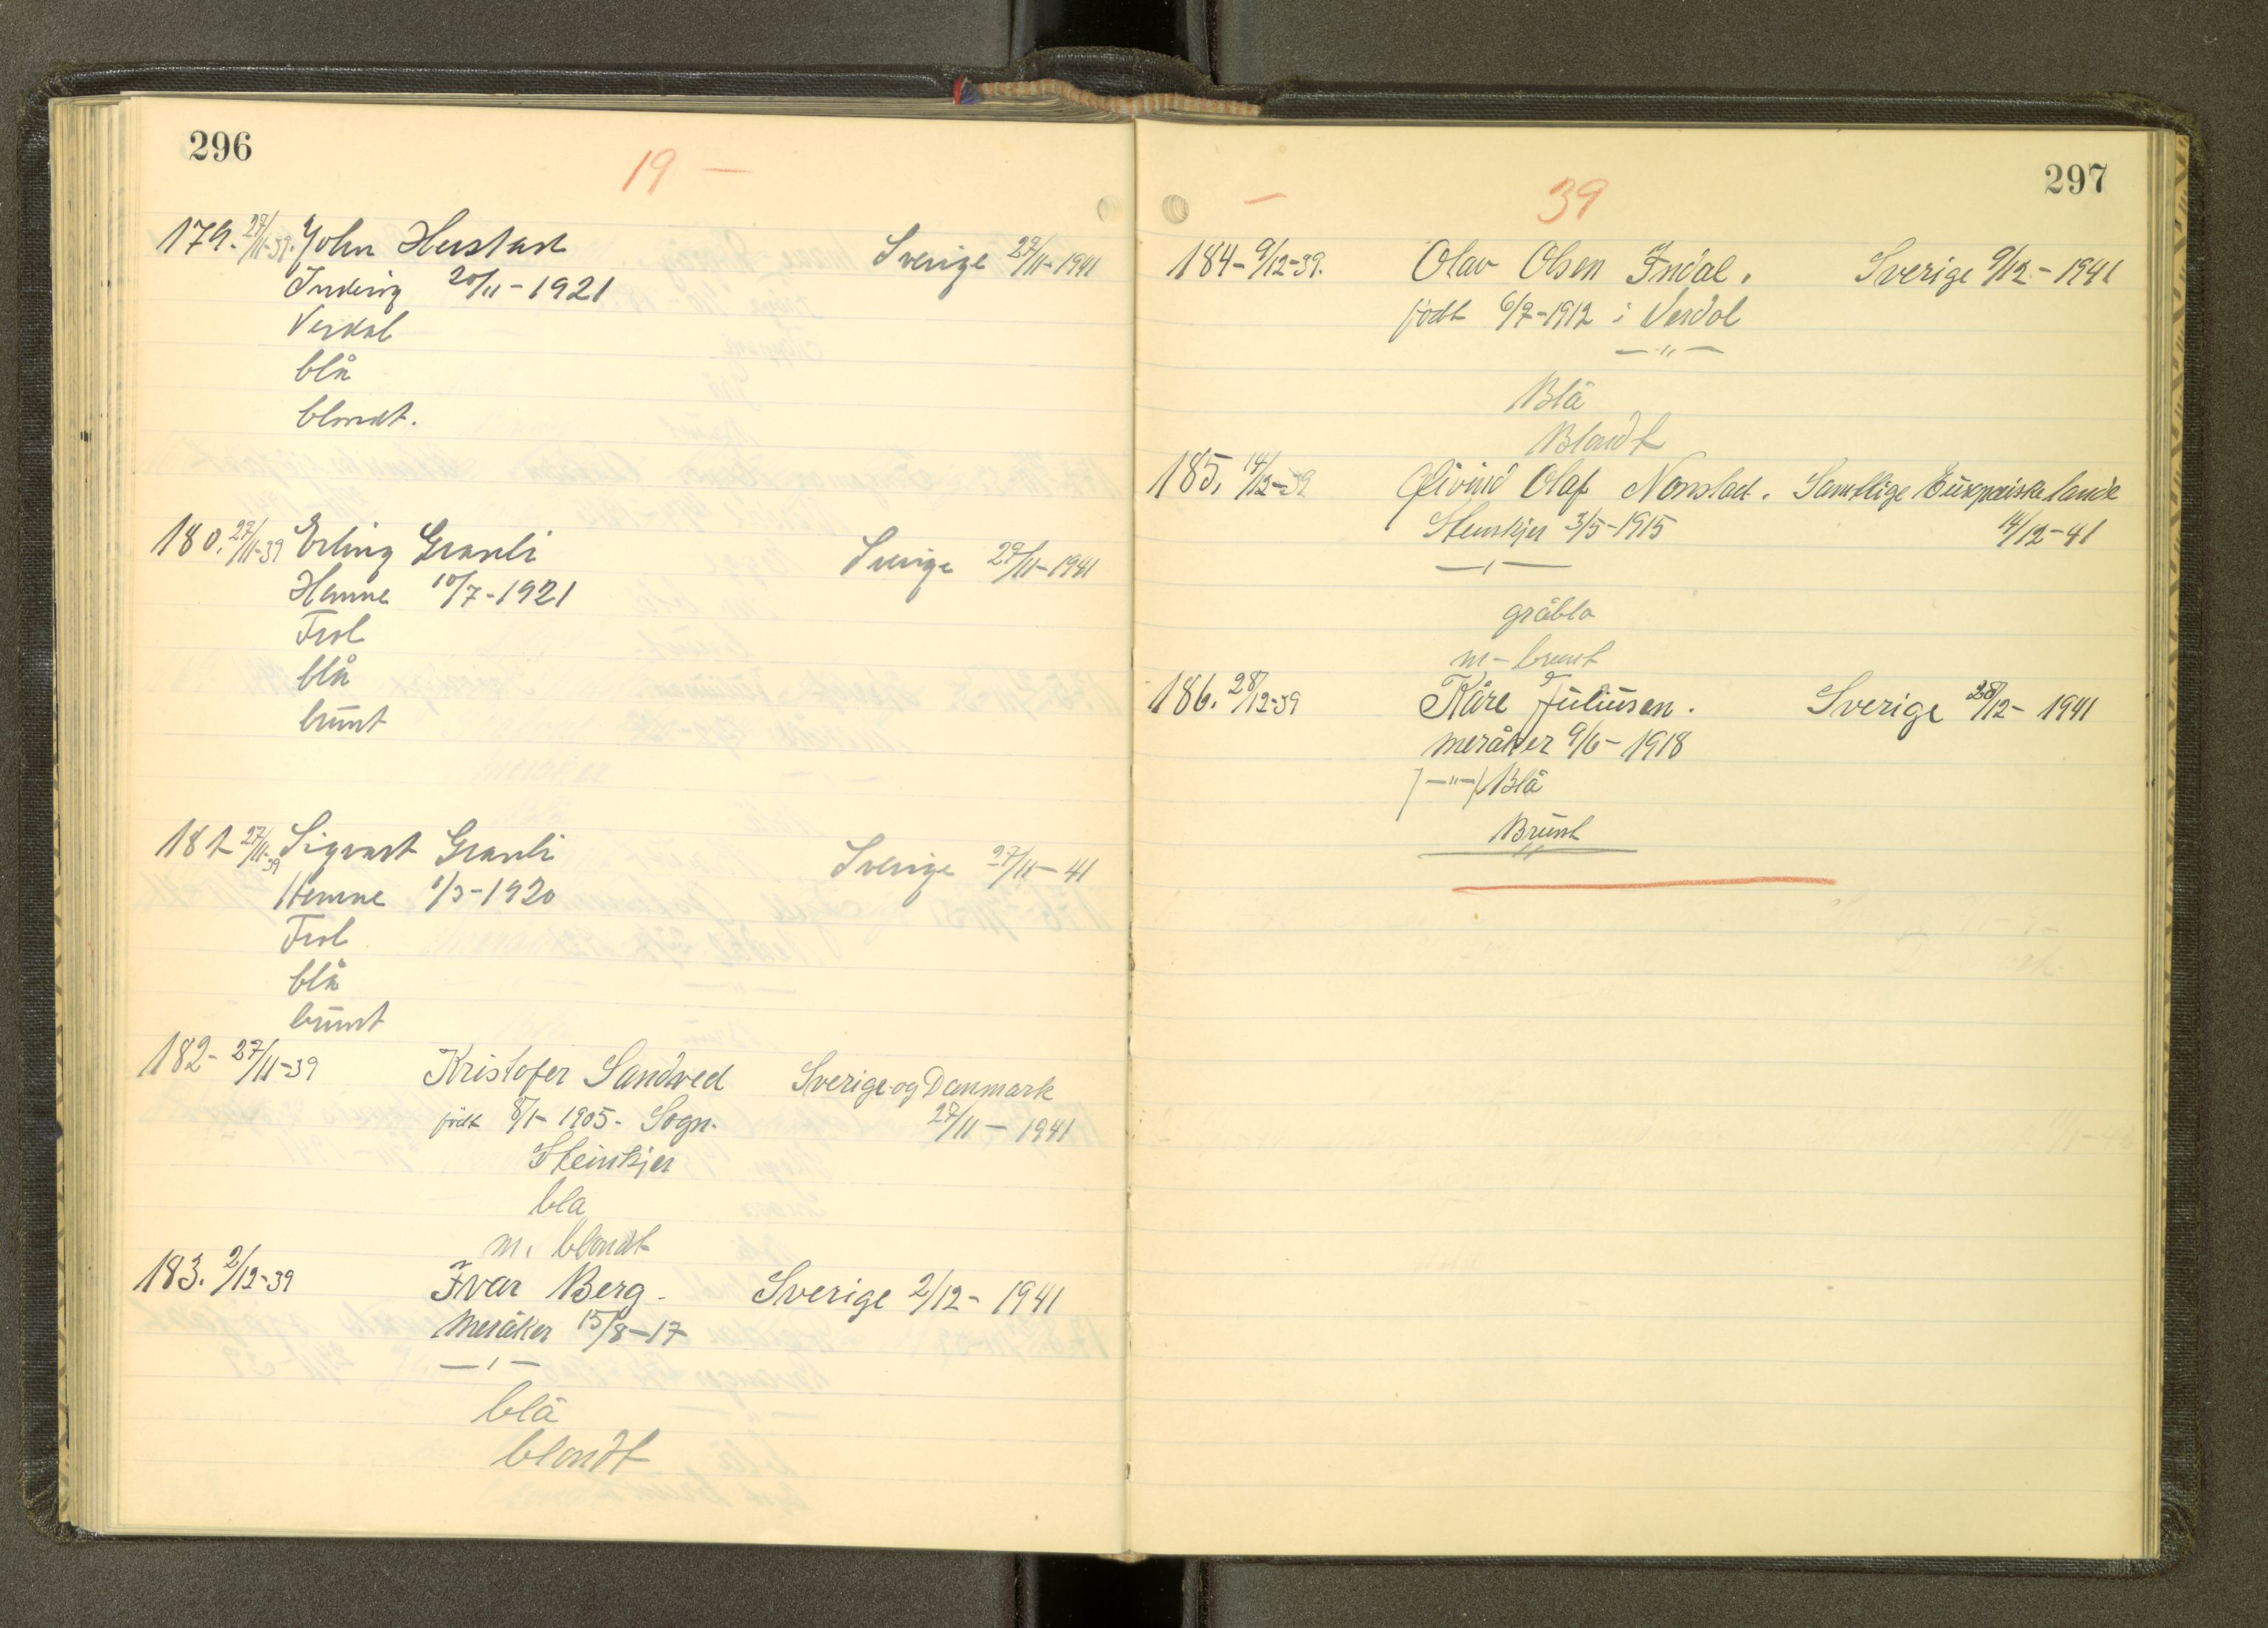 296
19 —
179. 27/11-39. John Herstad Sverige 27/11-1941
Inderøy 20/11-1921
Verdal
blå
blondt.
180. 27/11-39 Erling Granli Sverige 29/11-1941
Hemne 10/7-1921
Frol
blå
brunt
181 27/11-39 Sigvart Granli Sverige 27/11-41
Hemne 1/3-1920
Frol
blå
brunt
182- 27/11-39 Kristofer Sandved Sverige og Danmark
født 8/1-1905- Sogn. 27/11-1941
Steinkjer
bla
m. blondt
183. 2/12-39 Ivar Berg. Sverige 2/12-1941
Meråker 15/8-17
—"—
blå
blondt
297
— 39
184- 9/12-39. Olav Olsen Indal. Sverige 9/12-1941
født 6/9-1912 i Verdal
—"—
Blå
Blondt
185. 14/12-39 Øivind Olaf Nonstad. Samtlige Europeiske lande
Steinkjer 3/5-1915 14/12-41
—"—
gråblå
m-brunt
186. 28/12-39 Kåre Juliusen. Sverige 28/12-1941
Meråker 9/6-1918
/—"—/ Blå
Brunt